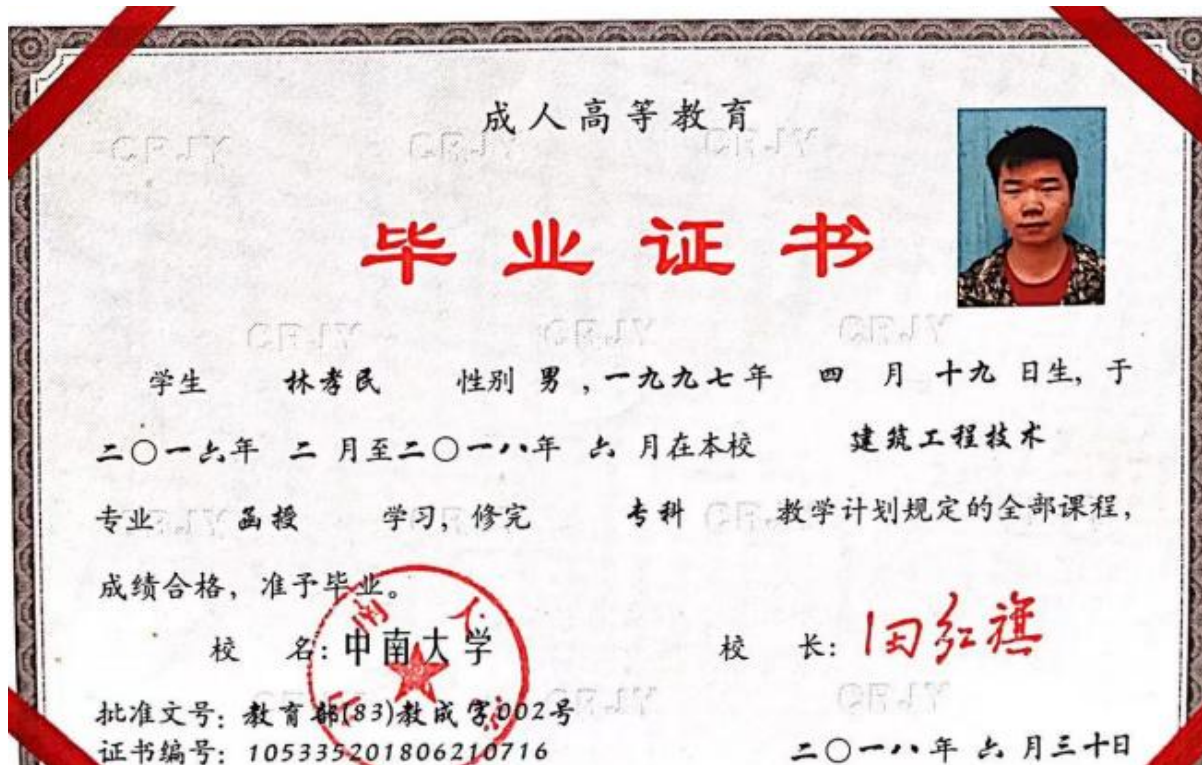 成人高等教育
毕业证书
学生 林孝民 性别 男 ,一九九七年 四 月 十九 日生, 于
二〇一六年 二 月至二〇一八年 六 月在本校 建筑工程技术
专业 函授 学习, 修完 专科 教学计划规定的全部课程,
成绩合格, 准予毕业。
校 名: 中南大学
校 长: 田红旗
批准文号: 教育部(83)教成字002号
证书编号: 105335201806210716
二〇一八年 六 月三十日